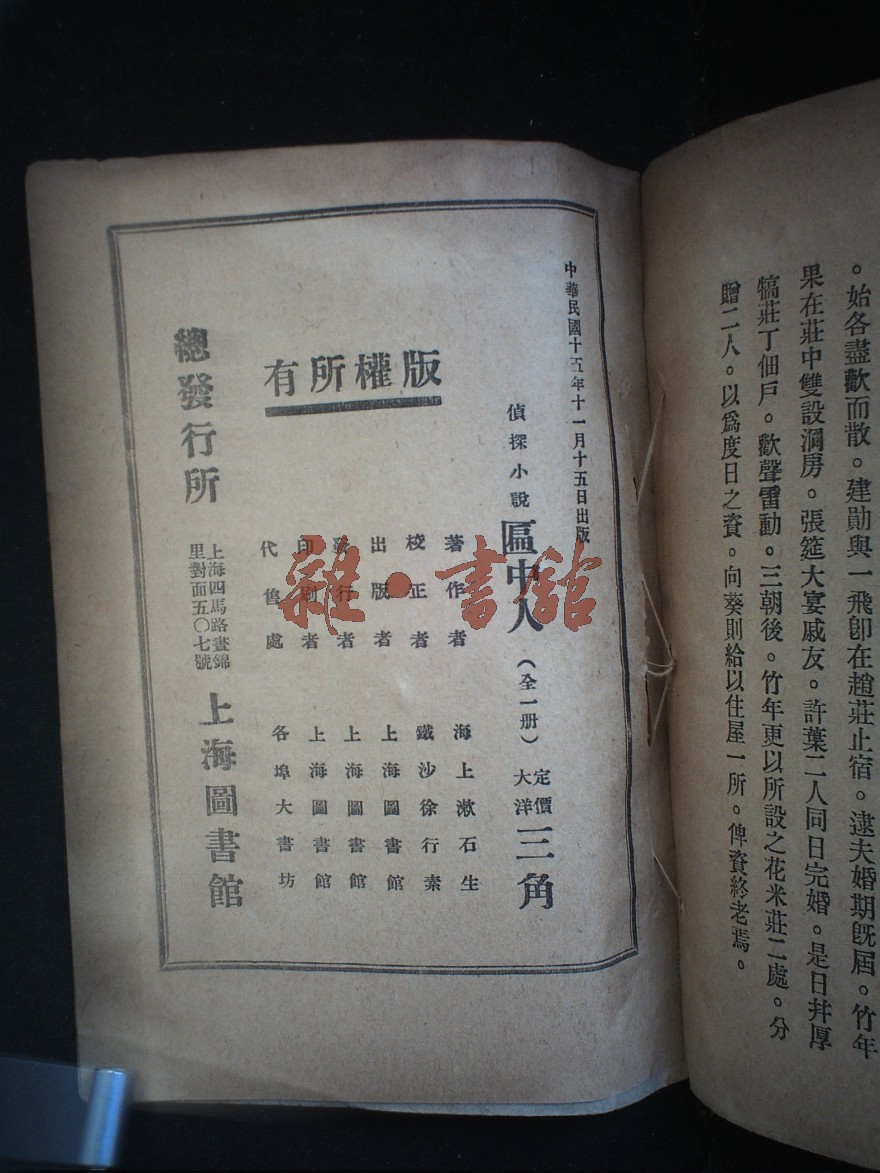 。始各盡歡而散。建勛與一飛卽在趙莊止宿。逮夫婚期旣屆。竹年
果在莊中雙設洞房。張筵大宴戚友。許葉二人同日完婚。是日幷厚
犒莊丁佃戶。歡聲雷動。三朝後。竹年更以所設之花米莊二處。分
贈二人。以爲度日之資。向葵則給以住屋一所。俾資終老焉。
中華民國十五年十一月十五日出版
偵探小說 匳中人 (全一册) 定價大洋三角
版權所有
著作者 海上漱石生
校正者 鐵沙徐行素
出版者 上海圖書館
發行者 上海圖書館
印刷者 上海圖書館
代售處 各埠大書坊
總發行所 上海四馬路晝錦里對面五〇七號 上海圖書館
雜·書館